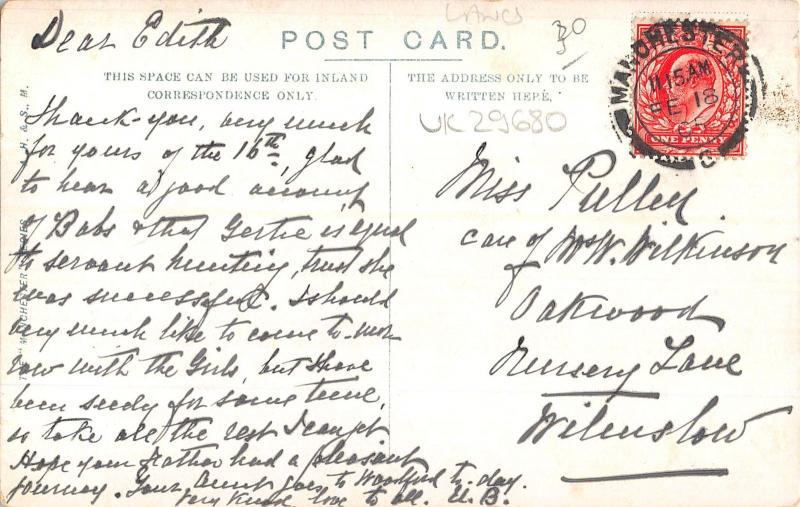 LANCS
30
Dear Edith
POST CARD.
THIS SPACE CAN BE USED FOR INLAND
CORRESPONDENCE ONLY.
THE ADDRESS ONLY TO BE
WRITTEN HERE,
UK 29680
MANCHESTER
11.15 AM
FE 18
ONE PENNY
Thank-you, very much
for yours of the 16th, glad
to hear a good account,
of Babs & that Gertie is equal
to servant hunting, trust she
was successful. I should
very much like to come to-mor
row with the Girls, but I have
been seedy for some time,
so take all the rest I can get
Hope your Father had a pleasant
journey. Your Aunt goes to Woodford to-day.
Very kind love to all. E.B.
Miss Pulley
care of Mrs W. Wilkinson
Oakwood
Nursery Lane
Wilmslow
THE "MANCHESTER" SERIES
H. & S., M.